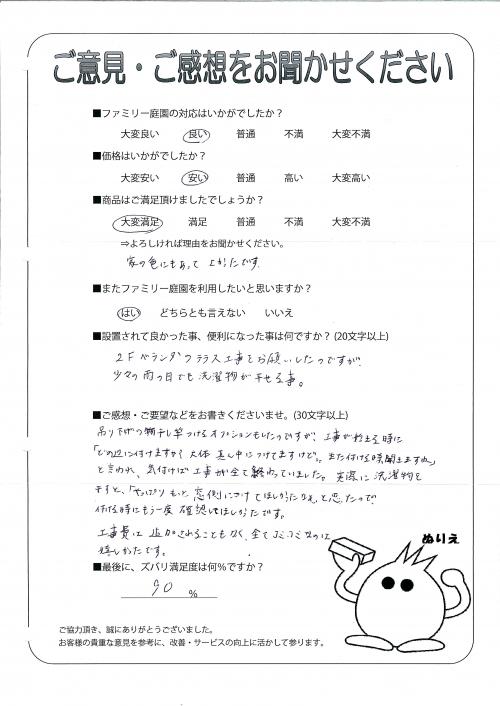 ご意見・ご感想をお聞かせください
■ファミリー庭園の対応はいかがでしたか？
大変良い 良い 普通 不満 大変不満
■価格はいかがでしたか？
大変安い 安い 普通 高い 大変高い
■商品はご満足頂けましたでしょうか？
大変満足 満足 普通 不満 大変不満
⇒よろしければ理由をお聞かせください。
家の色にもあって よかったです。
■またファミリー庭園を利用したいと思いますか？
はい どちらとも言えない いいえ
■設置されて良かった事、便利になった事は何ですか？（20文字以上）
2Fベランダのテラス工事をお願いしたのですが、
少々の雨の日でも洗濯物が干せる事。
■ご感想・ご要望などをお書きくださいませ。（30文字以上）
吊り下げの物干し竿つけるオプションもしたのですが、工事が始まる時に
「どの辺に付けますか？大体真ん中につけてますけど。また付ける時聞きますね」
と言われ、気付けば工事が全て終わっていました。実際に洗濯物を
干すと、「やっぱりもっと窓側につけてほしかったなぁ」と思ったので、
付ける時にもう一度確認してほしかったです。
工事費は追加されることもなく、全てコミコミなのは
嬉しかったです。
■最後に、ズバリ満足度は何％ですか？
90 ％
ぬりえ
ご協力頂き、誠にありがとうございました。
お客様の貴重な意見を参考に、改善・サービスの向上に活かして参ります。